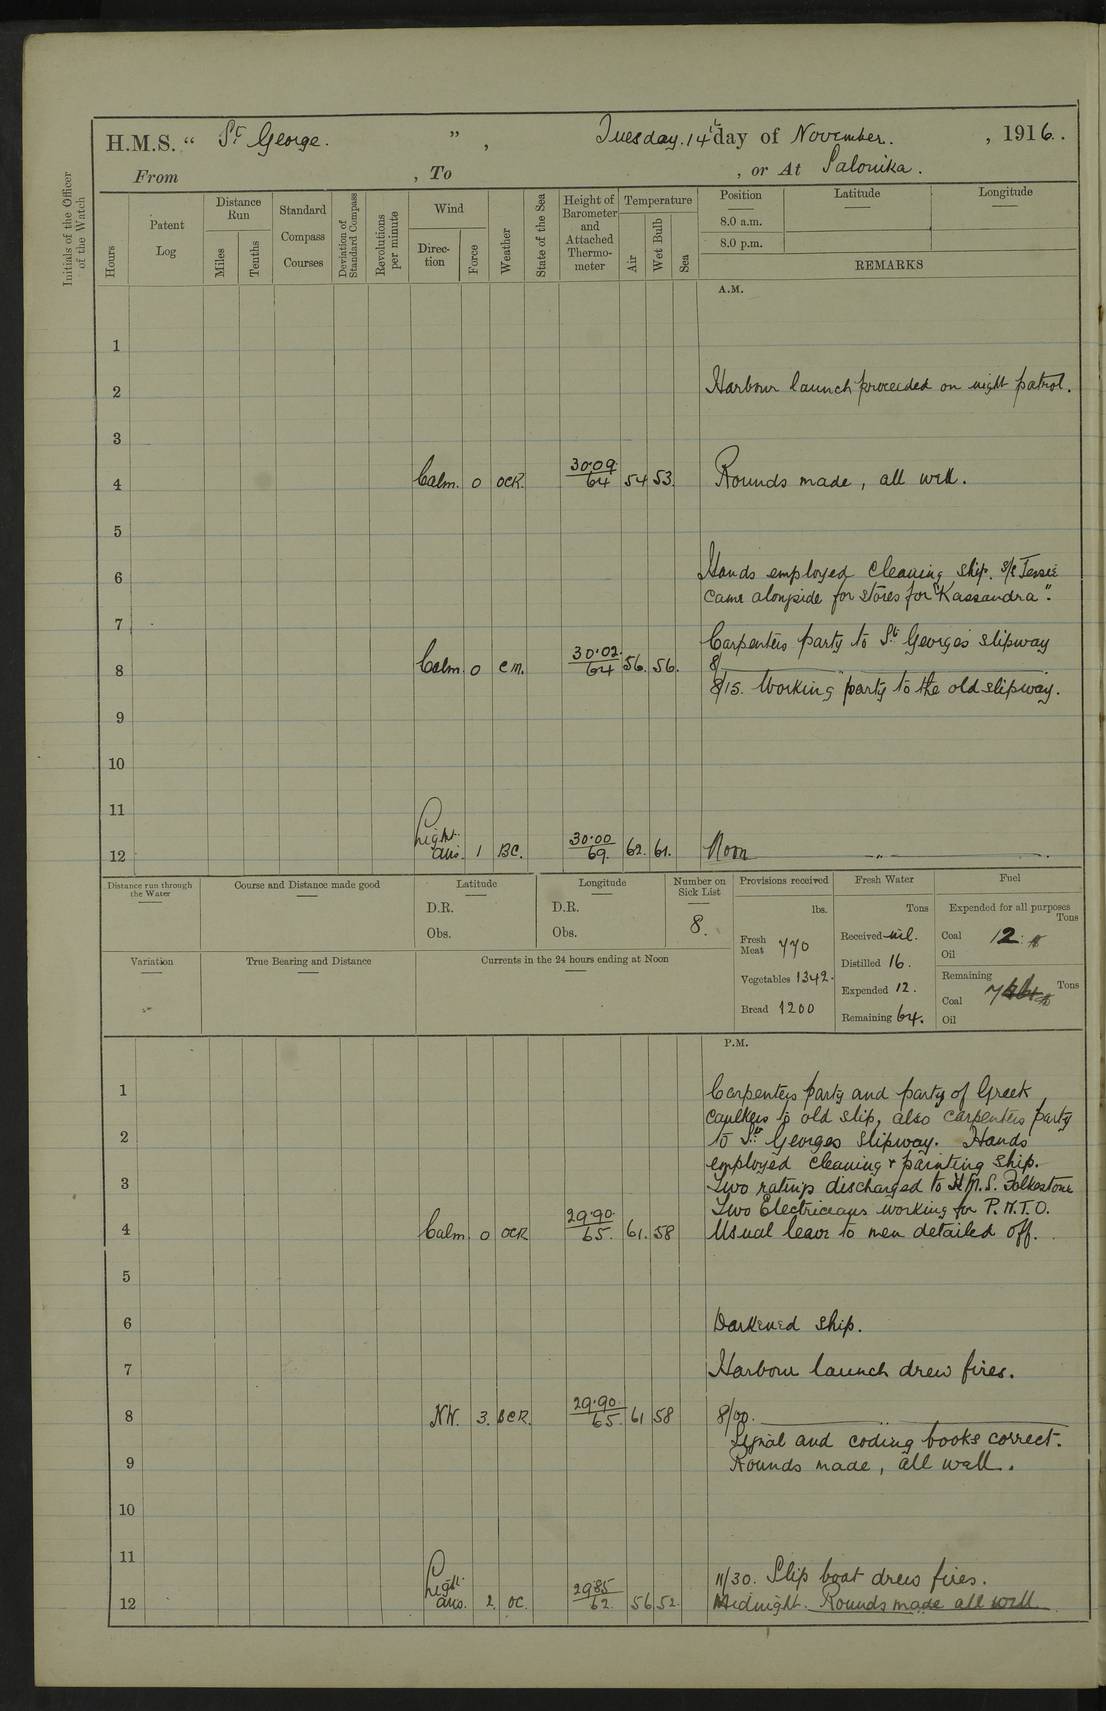 H.M.S. " St. George. ", Tuesday. 14th day of November. , 1916.
From , To , or At Salonika.
Initials of the Officer of the Watch
Hours
Patent Log
Distance Run
Miles
Tenths
Standard Compass Courses
Deviation of Standard Compass
Revolutions per minute
Wind
Direc-tion
Force
Weather
State of the Sea
Height of Barometer and Attached Thermo-meter
Temperature
Air
Wet Bulb
Sea
Position
Latitude
Longitude
8.0 a.m.
8.0 p.m.
REMARKS
A.M.
1
2 Harbour launch proceeded on night patrol.
3
4 Calm. 0 OCR. 30.09 64 54 53. Rounds made, all well.
5
6 Hands employed cleaning ship. S/S
came alongside for stores for "Kassandra".
7 Carpenters party to St. Georges slipway
8 Calm. 0 cm. 30.02. 64 56. 56. 8/
8/15. Working party to the old slipway.
9
10
11
12 Light airs. 1 BC. 30.00 69. 62. 61. Noon
Distance run through the Water
Course and Distance made good
Latitude
D.R.
Obs.
Longitude
D.R.
Obs.
Number on Sick List
8.
Provisions received
lbs.
Fresh Meat 770
Vegetables 1342.
Bread 1200
Fresh Water
Tons
Received nil.
Distilled 16.
Expended 12.
Remaining 64.
Fuel
Expended for all purposes
Tons
Coal 12
Oil
Remaining
Tons
Coal
Oil
Variation
True Bearing and Distance
Currents in the 24 hours ending at Noon
P.M.
1 Carpenters party and party of Greek
caulkers to old slip, also carpenters party
2 to St. Georges slipway. Hands
employed cleaning & painting ship.
3 Two ratings discharged to H.M.S. Folkestone
Two Electricians working for P.N.T.O.
4 Calm 0 OCR 29.90. 65. 61. 58 Usual leave to men detailed off.
5
6 Darkened ship.
7 Harbour launch drew fires.
8 NW. 3. BCR. 29.90. 65. 61 58 8/00.
Signal and coding books correct.
9 Rounds made, all well.
10
11
11/30. Slip boat drew fires.
12 Light airs. 2. OC. 29.85 62. 56 52. Midnight. Rounds made all well